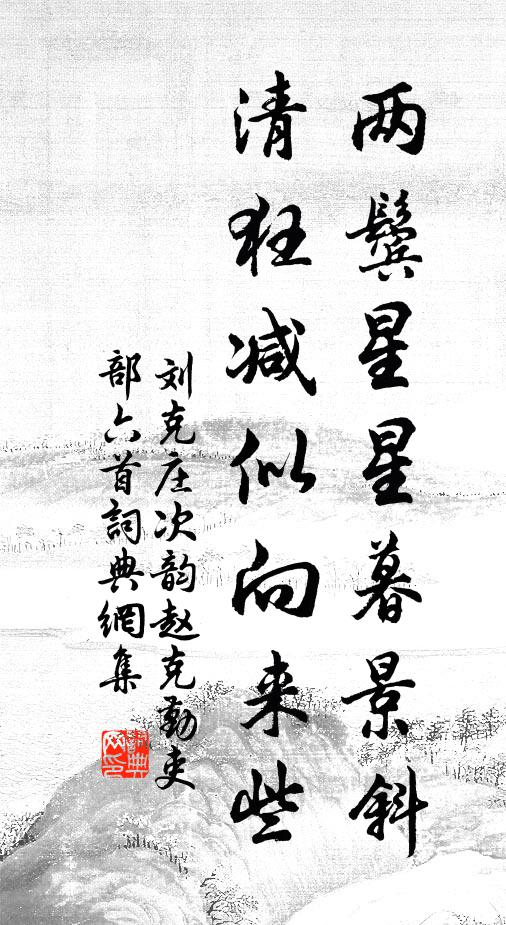 两鬓星星暮景斜
清狂减似向来些
刘克庄次韵赵克勤吏
部六首詞典網集